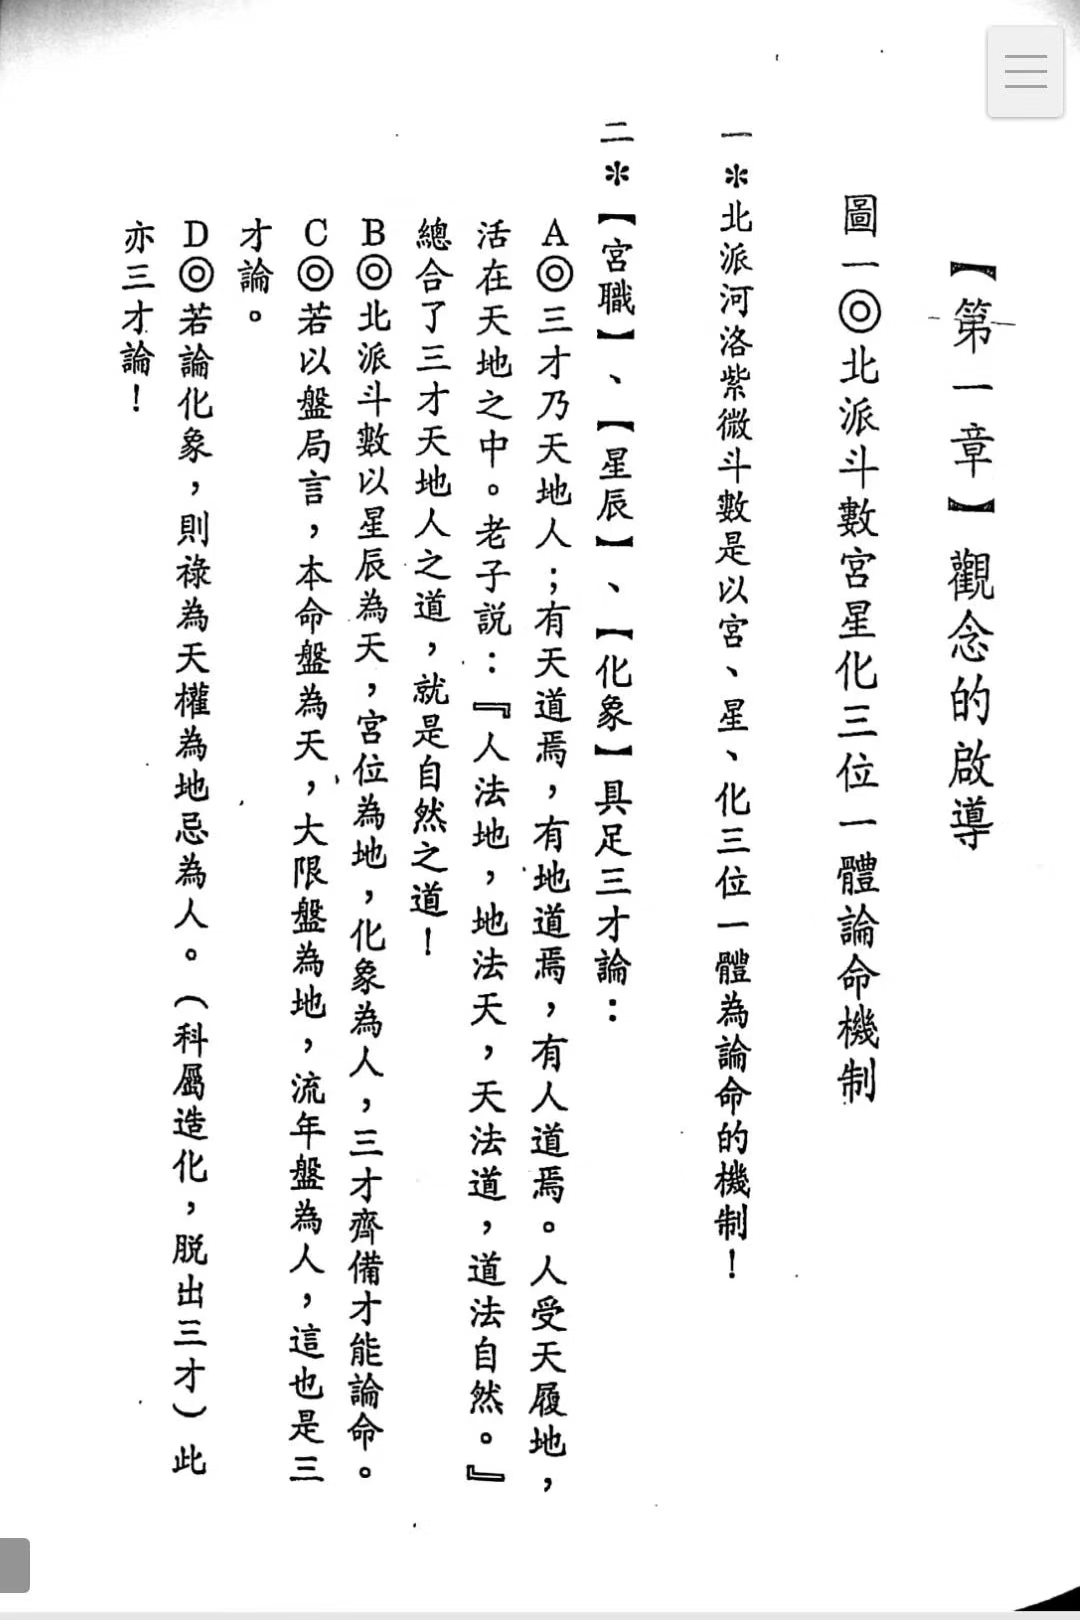 【第一章】觀念的啟導
圖一◎北派斗數宮星化三位一體論命機制
一＊北派河洛紫微斗數是以宮、星、化三位一體為論命的機制！
二＊【宮職】、【星辰】、【化象】具足三才論：
A◎三才乃天地人；有天道焉，有地道焉，有人道焉。人受天履地，
活在天地之中。老子説：『人法地，地法天，天法道，道法自然。』
總合了三才天地人之道，就是自然之道！
B◎北派斗數以星辰為天，宮位為地，化象為人，三才齊備才能論命。
C◎若以盤局言，本命盤為天，大限盤為地，流年盤為人，這也是三
才論。
D◎若論化象，則祿為天權為地忌為人。（科屬造化，脫出三才）此
亦三才論！